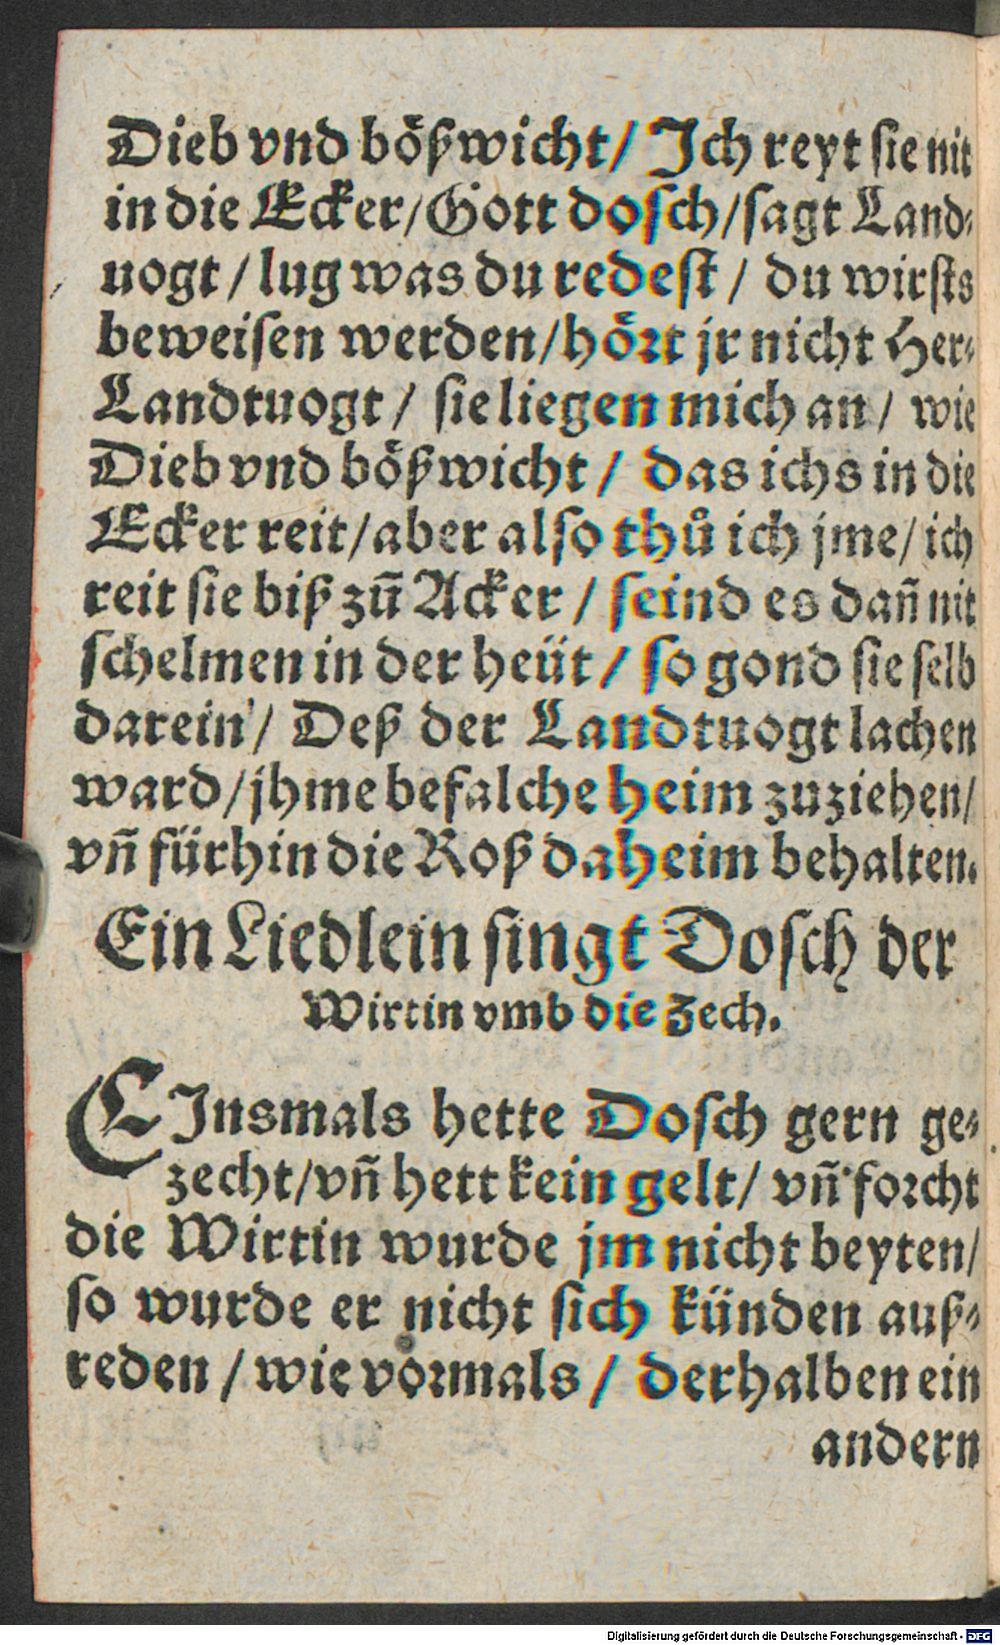 Dieb vnd bößwicht/ Ich reyt sie nit
in die Ecker/Gott dosch/sagt Land⸗
uogt / lug was du redest / du wirsts
beweisen werden/hoͤrt jr nicht Her⸗
Landtuogt / sie liegen mich an / wie
Dieb vnd boͤßwicht / das ichs in die
Ecker reit/aber also thuͦ ich jme/ich
reit sie biß zuͦ Acker / seind es dañ nit
schelmen in der heüt / so gond sie selb
darein / Deß der Landtuogt lachen
ward/jhme befalche heim zuziehen/
vñ fürhin die Roß daheim behalten.
Ein Liedlein singt Dosch der
Wirtin vmb die Zech.
EInsmals hette Dosch gern ge⸗
zecht/vñ hett kein gelt/ vñ forcht
die Wirtin wurde jm nicht beyten/
so wurde er nicht sich künden auß⸗
reden / wie vormals / derhalben ein
andern
Digitalisierung gefördert durch die Deutsche Forschungsgemeinschaft - DFG